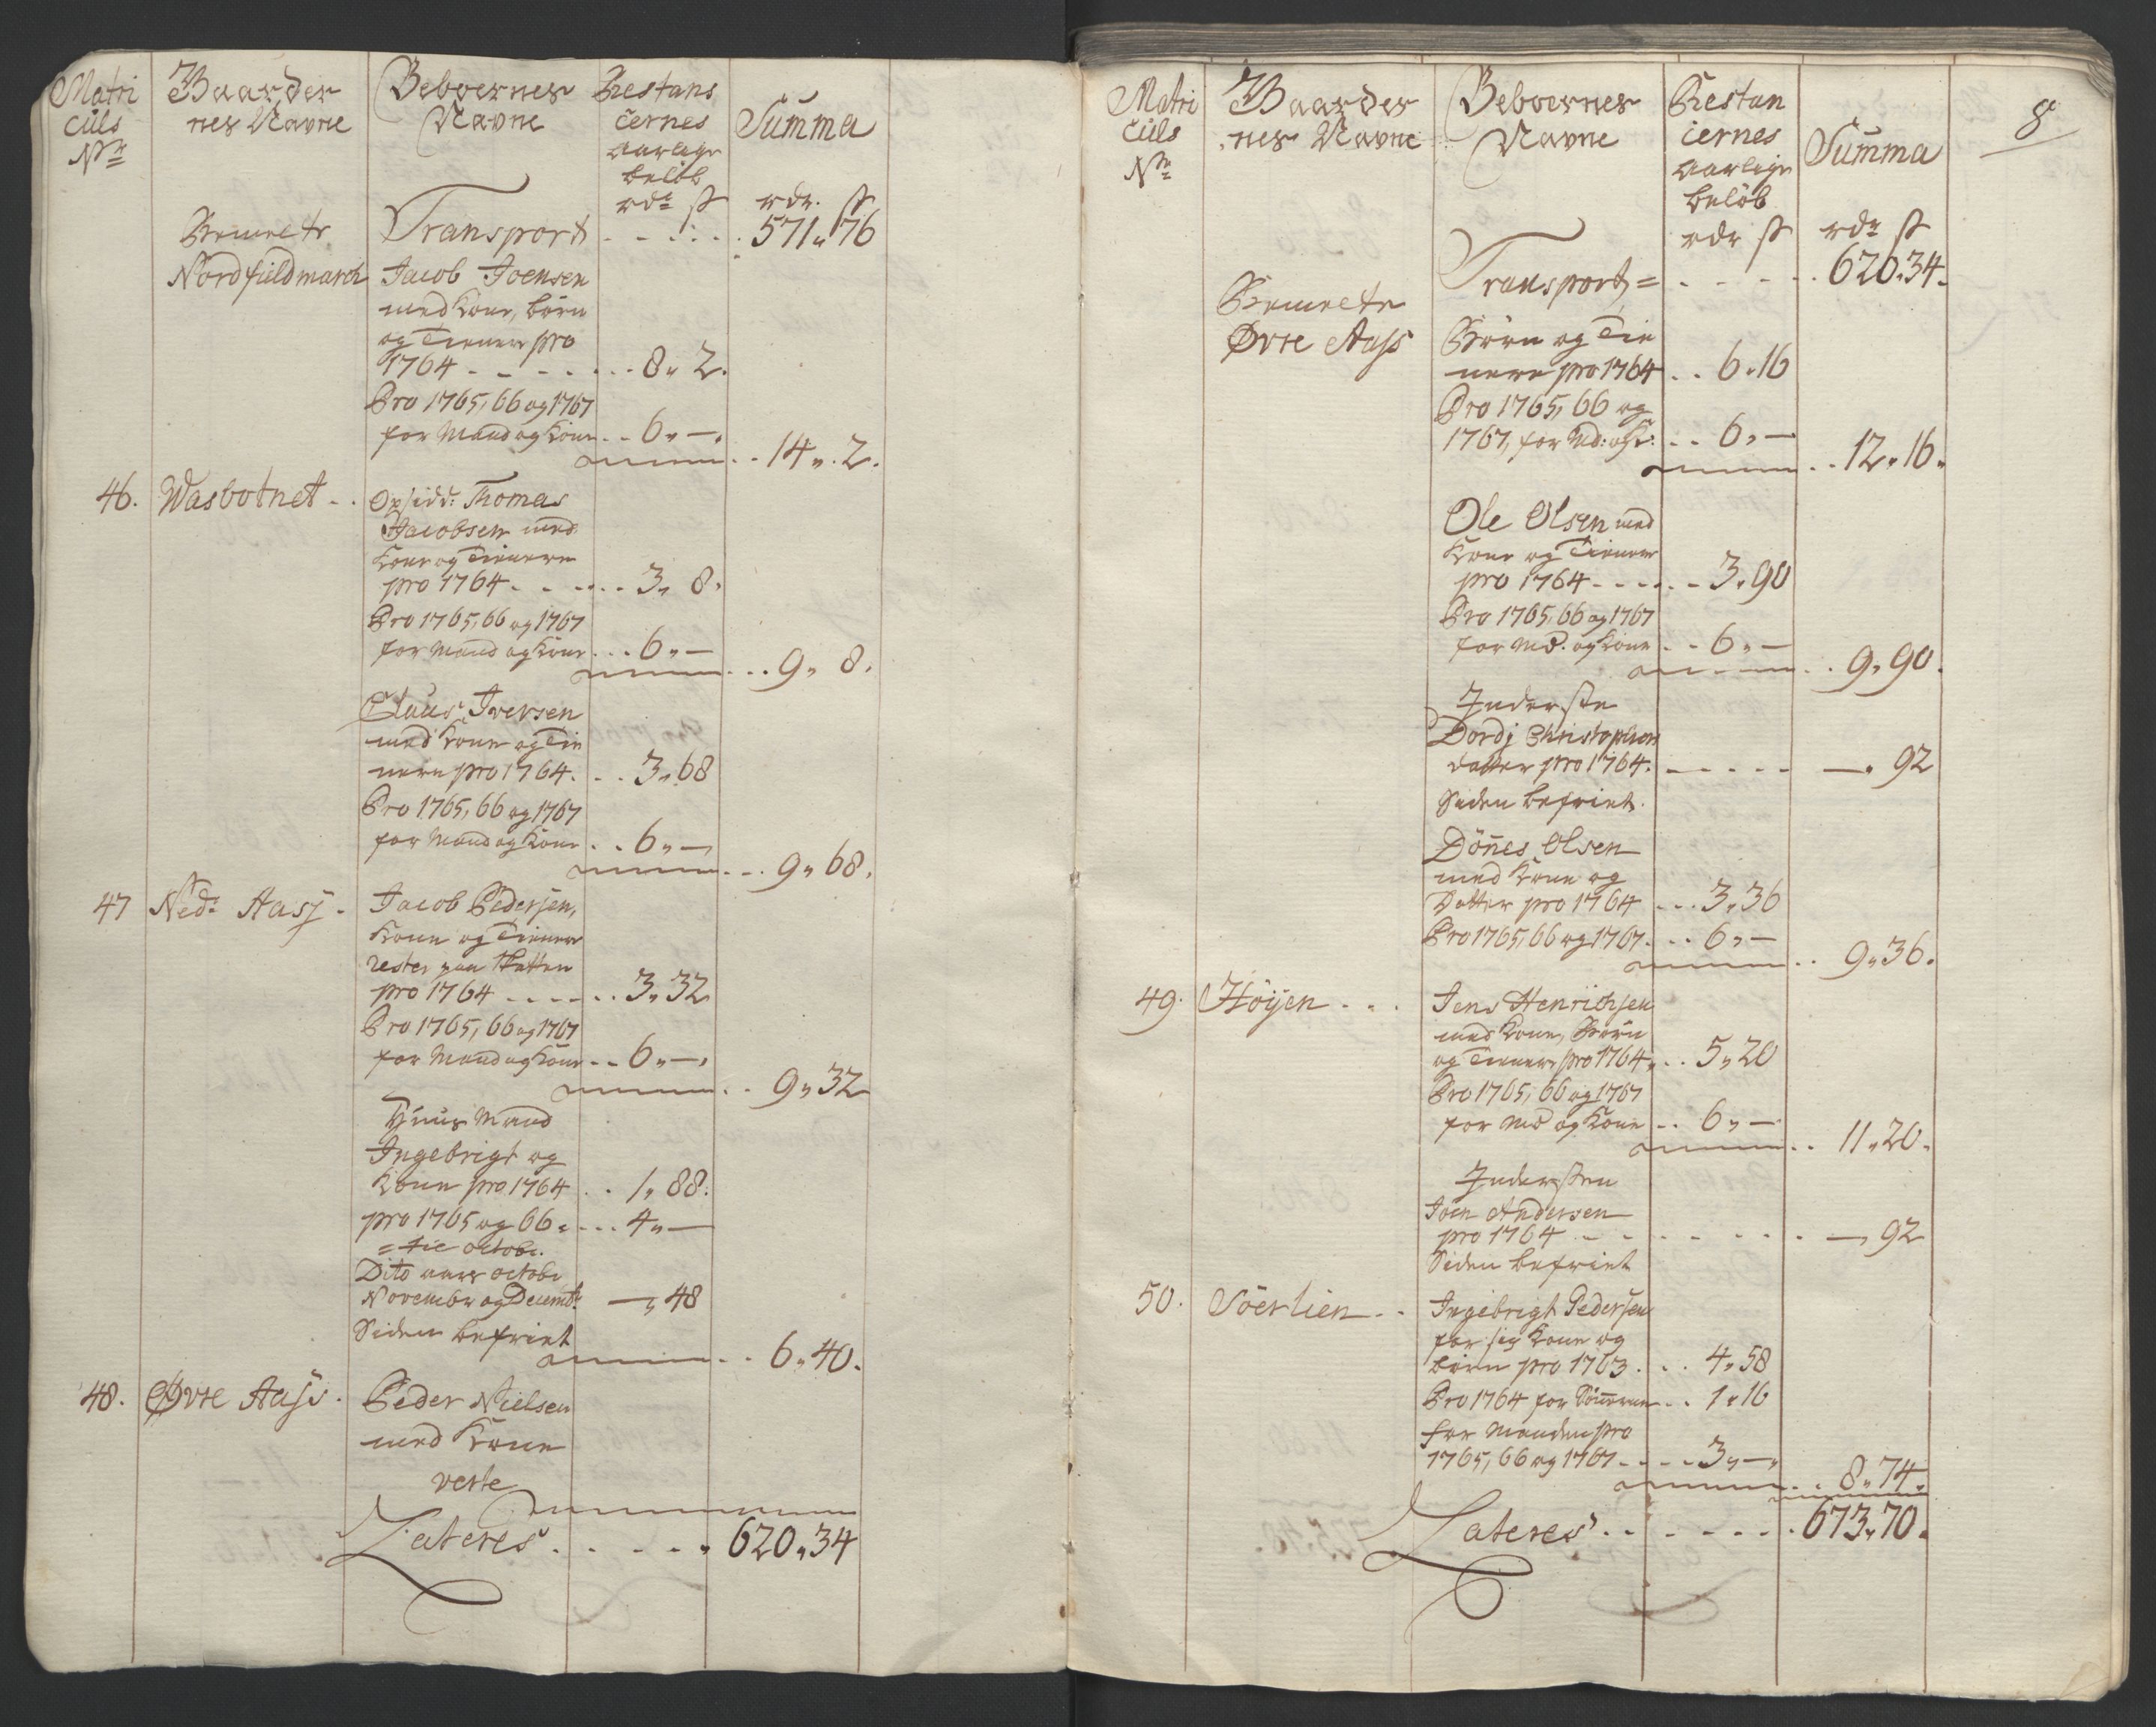 Matri
culs
No
Gaarder
nes Navne
Beboernes
Navne
Restans
cernes
aarlige
beløb
rdr ß
Summa
rdr. ß
Transport - - - - - 571 " 76
Bemeldte
Nordfieldmarch
Jacob Joensen
med Kone, børn
og Tienere pro
1764 - - - - - - 8 " 2.
Pro 1765, 66 og 1767
for Mand og Kone - - 6 " —
- - 14 " 2.
46. Wasbotnet - -
Opsidd: Thomas
Jacobsen med
Kone og Tienere
pro 1764 - - - - - 3 " 8.
Pro 1765, 66 og 1767
for Mand og Kone - - - 6 " —
- - - 9 " 8.
Claus Iversen
med Kone og Tie
nere pro 1764. - - 3 " 68
Pro 1765, 66 og 1767
for Mand og Kone - - 6 " —
- - - 9 " 68.
47 Nedr Aass -
Jacob Pedersen,
Kone og Tienere
rester paa Skatten
pro 1764 - - - - - - 3 " 32
Pro 1765, 66 og 1767
for Mand og Kone - - 6 " —
- - 9 " 32
Huus Mand
Ingebrigt og
Kone pro 1764 - - 1 " 88.
pro 1765 og 66 = - - - 4 " —
= tie octobr.
Dito aars octobr
Novembr og Decembr — " 48
Siden befriet
- - 6 " 40.
48. Øvre Aass -
Peder Nielsen
med Kone
verte
Lateres - - - - - 620 " 34
8
Matri
culs
No
Gaarder
nes Navne
Beboernes
Navne
Restan
cernes
aarlige
beløb
rdr ß
Summa
rdr ß
Transport = - - - - 620 " 34.
Bemeldte
Øvre Aass
Børn og Tie
nere pro 1764 - - 6 " 16
Pro 1765, 66 og
1767, for Md: og K: - - 6 " —
- - 12 " 16.
Ole Olsen med
Kone og Tienere
pro 1764 - - - - - 3 " 90
Pro 1765, 66 og 1767
for Md. og Kone - - 6 " —
- - 9 " 90.
Inderste
Dordj Christophers
datter pro 1764. - - - - - — " 92
Siden befriet.
Dönes Olsen
med Kone og
Datter pro 1764 - - - 3 " 36
Pro 1765, 66 og 1767. - - 6 " —
- - 9 " 36.
49. Høyen - - -
Jens Henrichsen
med Kone, Børn
og Tienere pro 1764 " - - 5 " 20
Pro 1765, 66 og 1767
for Md og Kone - - 6 " —
- - 11 " 20.
Indersten
Joen Andersen
pro 1764 - - - - - - - - — " 92
Siden befriet
50. Söerlien - -
Ingebrigt Pedersen
for sig Kone og
børn pro 1763. - - 4 " 58
Pro 1764 for Sønnerne - - 1 " 16
for Manden pro
1765, 66 og 1767 - - - - 3 " —
- - 8 " 74.
Lateres - - - - - - - 673 " 70.